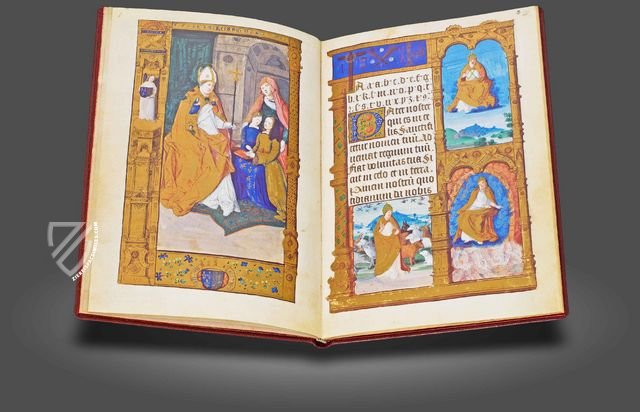 A a b c d e f g
h i k l m n o p q r
s s t v u x y z
Pater noster
qui es in ce
lis Sanctifi
cetur nomen tuũ. ad
ueniat regnum tuũ.
Fiat voluntas tua Si
cut in celo et in terra.
Panem nostrũ quo
tidianum da nobis
ZIEREIS FACSIMILES.COM